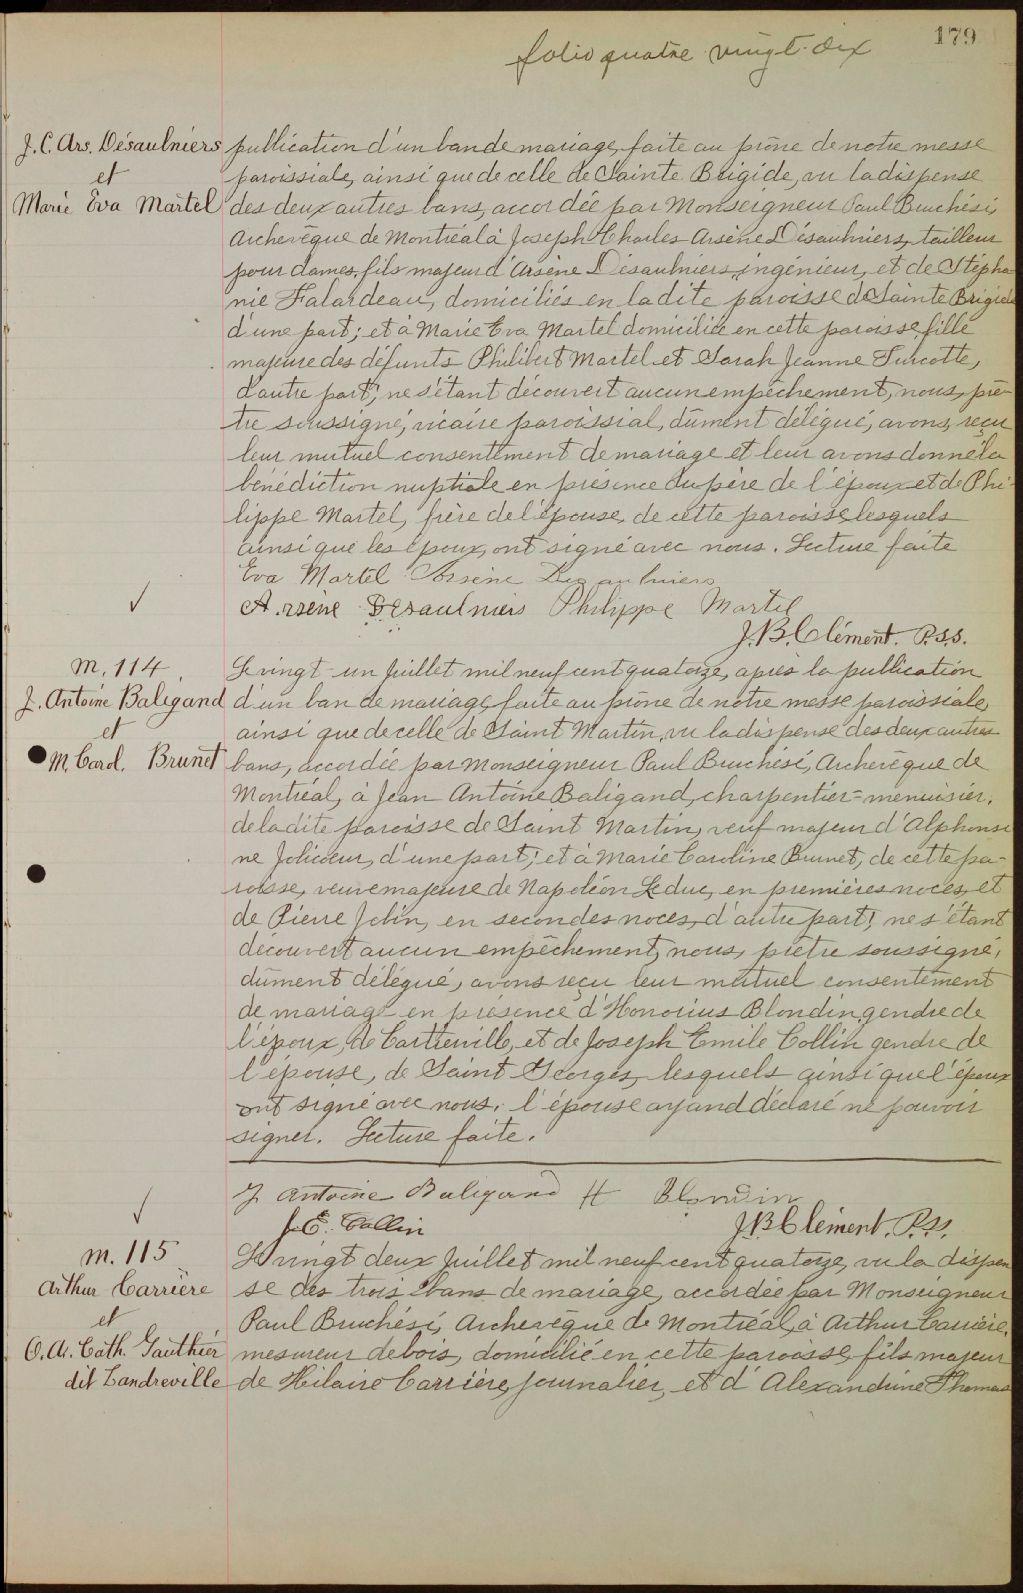 179
folio quatre vingt-dix
J. C. Ars. Désaulniers
et
Marie Eva Martel
publication d'un ban de mariage, faite au prône de notre messe
paroissiale, ainsi que de celle de Sainte Brigide, vu la dispense
des deux autres bans, accordée par Monseigneur Paul Bruchési,
Archevêque de Montréal à Joseph Charles Arsène Désaulniers, tailleur
pour dames, fils majeur d'Arsène Désaulniers, ingénieur, et de Stépha-
nie Falardeau, domiciliés en la dite paroisse de Sainte Brigide
d'une part; et à Marie Eva Martel domiciliée en cette paroisse, fille
majeure des défunts Philibert Martel et Sarah Jeanne Turcotte,
d'autre part; ne s'étant découvert aucun empêchement, nous, prê-
tre soussigné, vicaire paroissial, dûment délégué, avons, reçu
leur mutuel consentement de mariage et leur avons donné la
bénédiction nuptiale en présence du père de l'époux et de Phi-
lippe Martel, frère de l'épouse, de cette paroisse, lesquels
ainsi que les époux, ont signé avec nous. Lecture faite
Eva Martel Arsène Desaulniers
Arsène Desaulniers Philippe Martel
J. B. Clément. P.s.s.
m. 114
J. Antoine Baligand
et
M. Carol. Brunet
Le vingt-un Juillet mil neuf cent quatorze, après la publication
d'un ban de mariage, faite au prône de notre messe paroissiale,
ainsi que de celle de Saint Martin, vu la dispense des deux autres
bans, accordée par Monseigneur Paul Bruchési, Archevêque de
Montréal, à Jean Antoine Baligand, charpentier-menuisier,
de la dite paroisse de Saint Martin, veuf majeur d'Alphonsi
ne Jolicoeur, d'une part; et à Marie Caroline Brunet, de cette pa-
roisse, veuve majeure de Napoléon Leduc, en premières noces, et
de Pierre Jolin, en secondes noces, d'autre part; ne s'étant
découvert aucun empêchement, nous, prêtre soussigné,
dûment délégué, avons reçu leur mutuel consentement
de mariage en présence d'Honorius Blondin, gendre de
l'époux, de Cartierville, et de Joseph Emile Collin gendre de
l'épouse, de Saint Georges, lesquels ainsi que l'époux
ont signé avec nous, l'épouse ayand déclaré ne pouvoir
signer. Lecture faite.
J Antoine Baligand H Blondin
J. E. Collin
J. B. Clément. P.s.s.
m. 115
Arthur Carrière
et
O. Al. Cath. Gauthier
dit Landreville
Le vingt deux Juillet mil neuf cent quatorze, vu la dispen
se des trois bans de mariage, accordée par Monseigneur
Paul Bruchési, Archevêque de Montréal, à Arthur Carrière,
mesureur de bois, domicilié en cette paroisse, fils majeur
de Hilaire Carrière, journalier, et d'Alexandrine Thomas